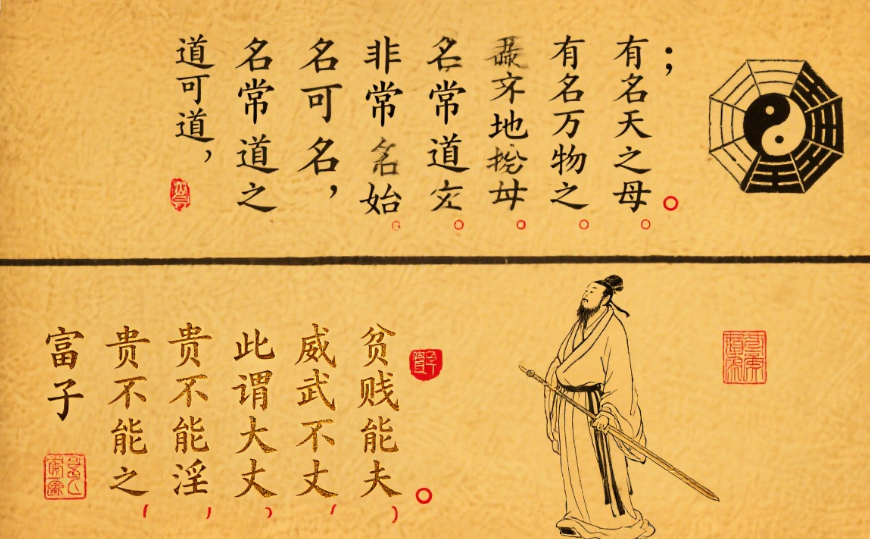 ；
有名天之母
有名万物之
地
名常道
非常名始
名可名，
名常道之
道可道，
贫贱能夫
威武不丈
此谓大丈
贵不能淫
贵不能之
富子